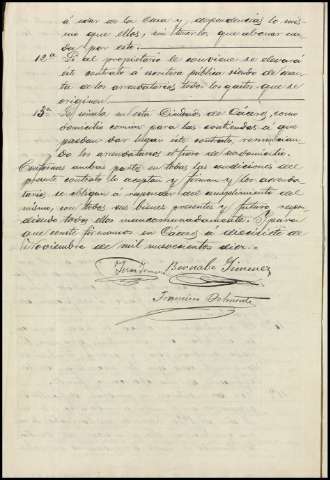 á usar de la Casa y, dependencias lo mis-
mo que ellos, sin tener los que abonar na-
da por esto.
12ª Si al propietario le conviene se elevará
este contrato á escritura pública siendo de cuen-
ta de los arrendatarios todos los gastos que se
originen
13ª Se señala en esta Ciudad de Cáceres, como
domicilio comun para las contiendas á que
puedan dar lugar este contrato, renuncian-
do los arrendatarios el fuero de su domicilio.
Conformes ambas partes en todas las condiciones del
presente contrato lo aceptan y firman y los arrenda-
tarios se obligan á responder del cumplimiento del
mismo, con todos sus bienes presentes y futuros respon-
diendo todos ellos mancomunadamente. Y para
que conste firmamos en Cáceres á diecisiete de
Noviembre de mil novecientos diez.
Bernabé Jimenez
Francisco